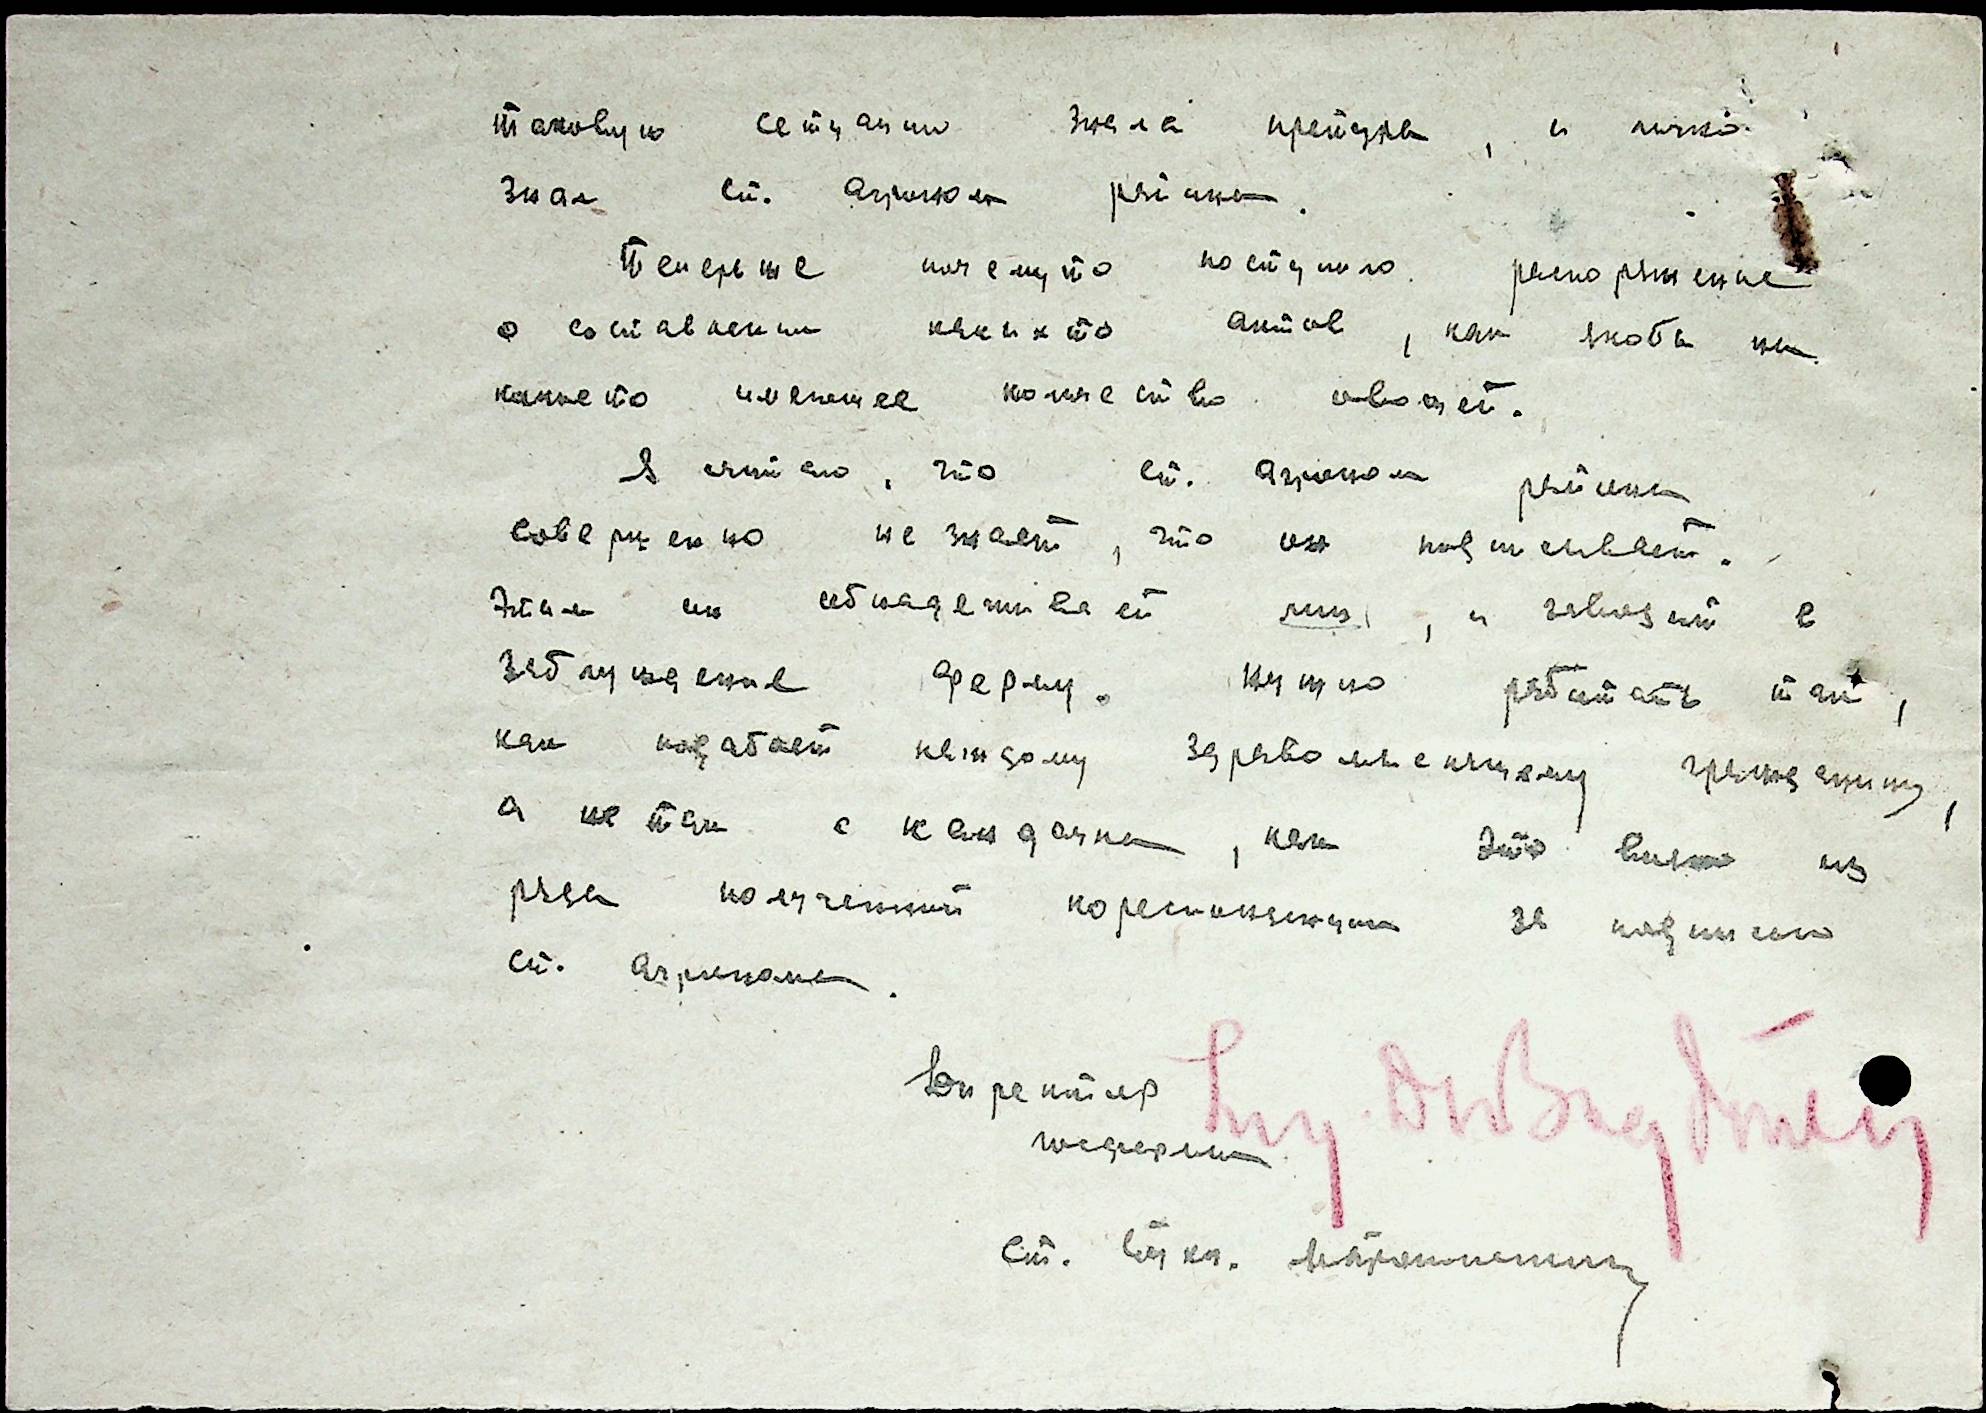 таковую сетуацию знала претура, и лично
знал ст. агроном района.
Теперь же почемуто поступило распоряжение
о составлении какихто актов, как якобы на
какоето имеющее количество овощей.
Я считаю, что ст. агроном района
совершенно не знает, что он подписывает.
Этим он обнадеживает лиц, и заводит в
заблуждение ферму. Нужно работать так,
как подабает каждому здравомыслящему гражданину,
а не так с кандачка, как это видно из
ряда полученной кореспонденции за подписью
ст. агронома.
Директор
госфермы
Ст. бухг.